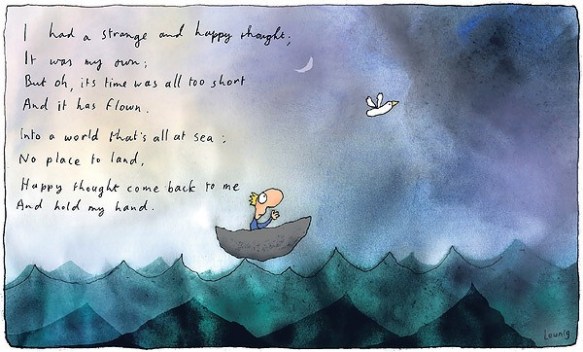 I had a strange and happy thought;
It was my own;
But oh, its time was all too short
And it has flown.
Into a world that's all at sea;
No place to land,
Happy thought come back to me
And hold my hand.
Leunig